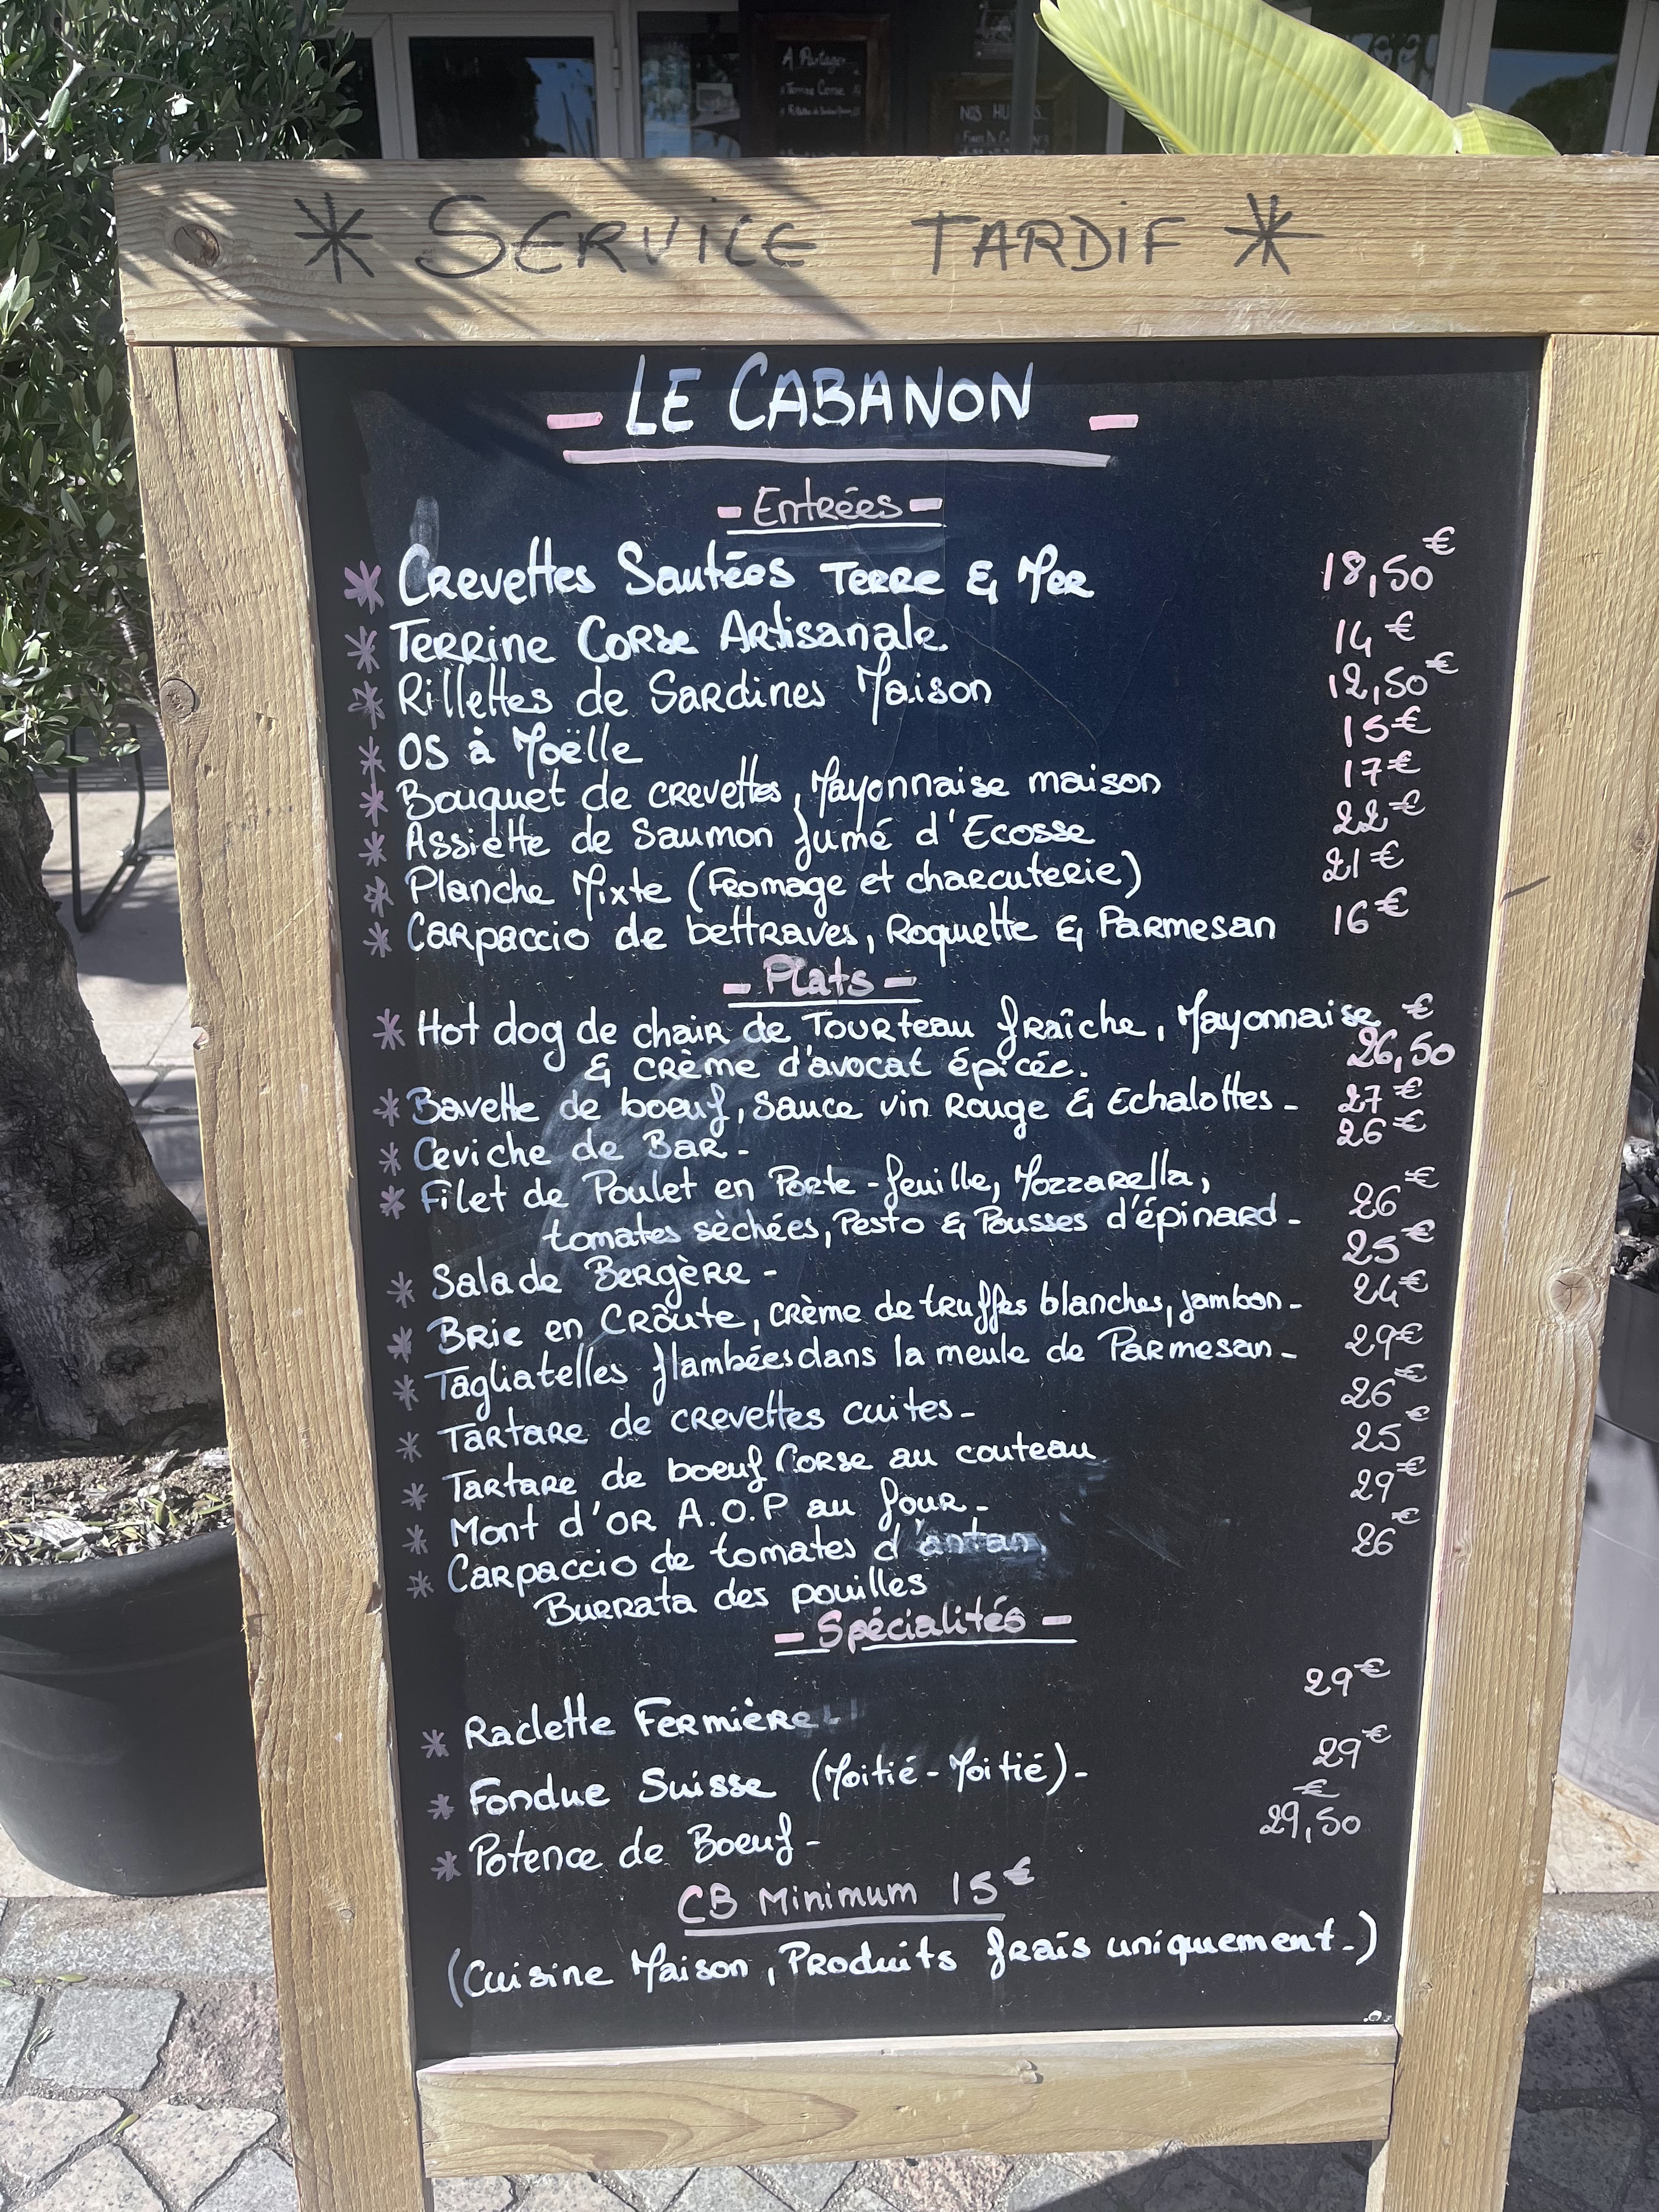 A Partager
Terrine Corse
NOS HU
* SERVICE TARDIF *
- LE CABANON -
- Entrées -
* Crevettes Sautées Terre & Mer 18,50€
* Terrine Corse Artisanale. 14€
* Rillettes de Sardines Maison 12,50€
* OS à Moëlle 15€
* Bouquet de crevettes, Mayonnaise maison 17€
* Assiette de Saumon fumé d'Ecosse 22€
* Planche Mixte (Fromage et charcuterie) 21€
* Carpaccio de bettraves, Roquette & Parmesan 16€
- Plats -
* Hot dog de chair de Tourteau fraîche, Mayonnaise €
& crème d'avocat épicée. 26,50
* Bavette de boeuf, sauce vin Rouge & Echalottes - 27€
* Ceviche de Bar - 26€
* Filet de Poulet en Porte-feuille, Mozzarella,
tomates sèchées, Pesto & Pousses d'épinard - 26€
* Salade Bergère - 25€
* Brie en Croûte, crème de truffes blanches, jambon - 24€
* Tagliatelles flambées dans la meule de Parmesan - 29€
* Tartare de crevettes cuites - 26€
* Tartare de boeuf Corse au couteau 25€
* Mont d'OR A.O.P au four - 29€
* Carpaccio de tomates d'antan, 26€
Burrata des pouilles
- Spécialités -
* Raclette Fermière. 29€
* Fondue Suisse (Moitié-Moitié) - 29€
* Potence de Boeuf - 29,50€
CB Minimum 15€
(Cuisine Maison, Produits frais uniquement.)